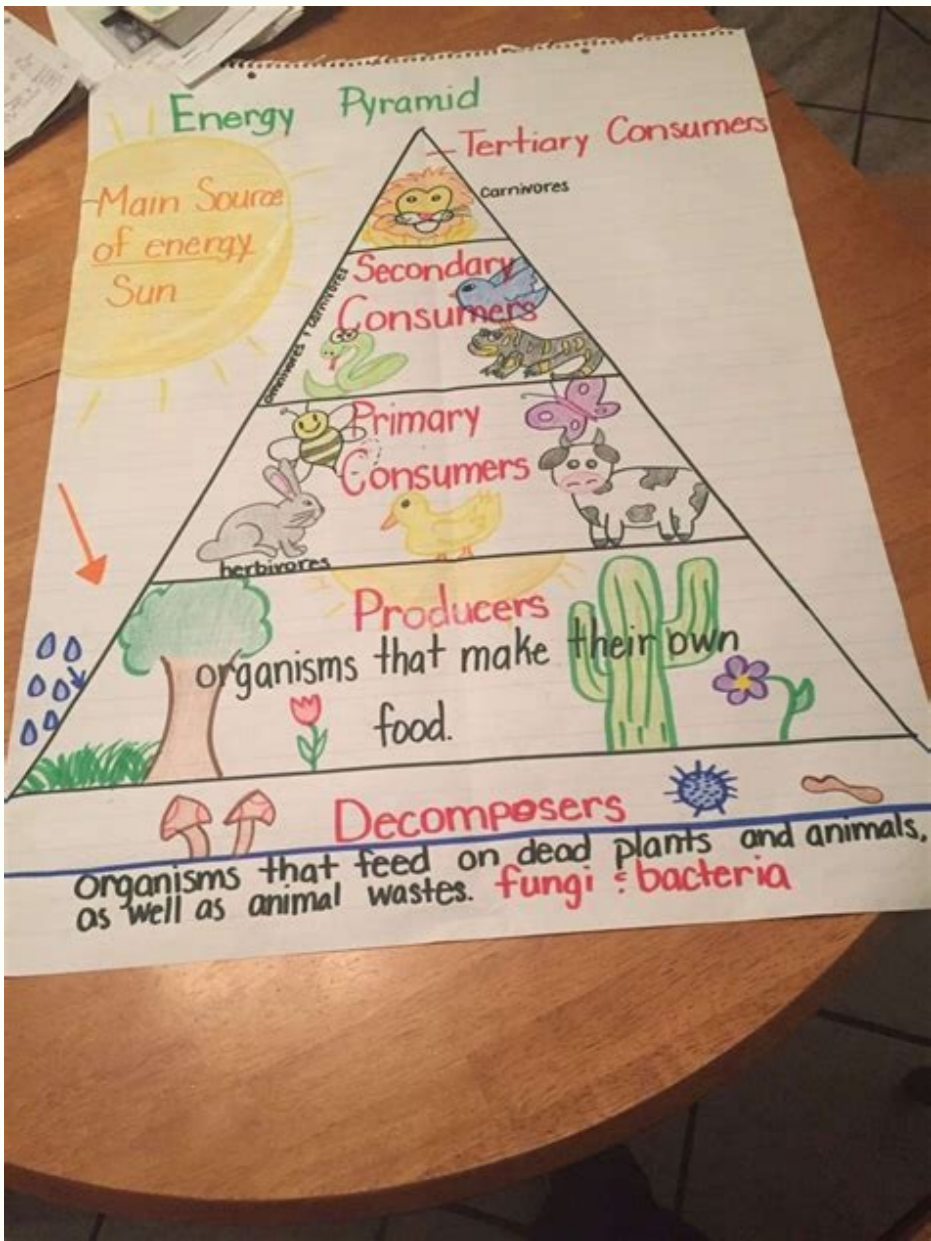 Energy Pyramid
Tertiary Consumers
Carnivores
Main Source
of energy
Sun
Secondary
Consumers
omnivores & carnivores
Primary
Consumers
herbivores
Producers
organisms that make their own
food.
Decomposers
organisms that feed on dead plants and animals,
as well as animal wastes. fungi & bacteria